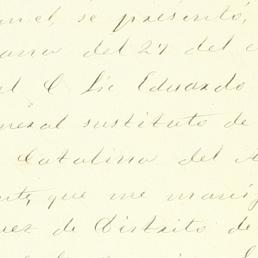 se presentó,
ana del 27 del
el C Lic Eduardo
neral sustituto de
Catalina del
que me mani
uez de Distrito de